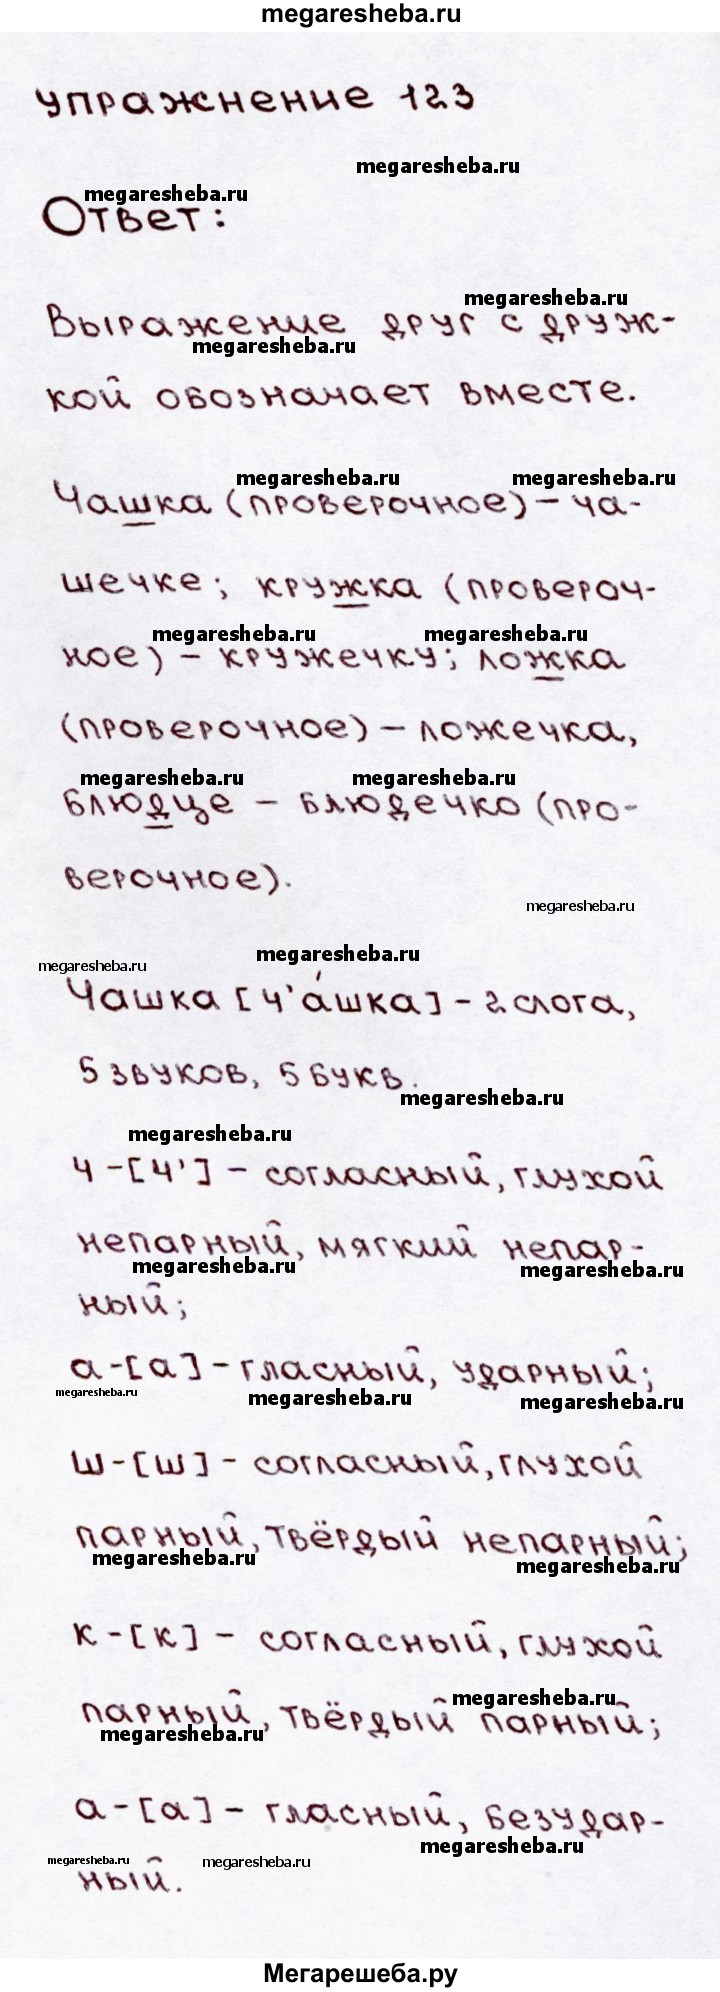 megaresheba.ru
упражнение 123
megaresheba.ru
megaresheba.ru
Ответ:
megaresheba.ru
Выражение друг с друж-
megaresheba.ru
кой обозначает вместе.
megaresheba.ru megaresheba.ru
Чашка (проверочное) – ча-
шечке; кружка (провероч-
megaresheba.ru megaresheba.ru
ное) – кружечку; ложка
(проверочное) – ложечка,
megaresheba.ru megaresheba.ru
блюдце – блюдечко (про-
верочное).
megaresheba.ru
megaresheba.ru megaresheba.ru
Чашка [ч'а́шка] – 2 слога,
5 звуков, 5 букв.
megaresheba.ru
megaresheba.ru
ч – [ч'] – согласный, глухой
непарный, мягкий непар-
megaresheba.ru megaresheba.ru
ный;
а – [а] – гласный, ударный;
megaresheba.ru megaresheba.ru megaresheba.ru
ш – [ш] – согласный, глухой
парный, твёрдый непарный;
megaresheba.ru megaresheba.ru
к – [к] – согласный, глухой
megaresheba.ru
парный, твёрдый парный;
megaresheba.ru
а – [а] – гласный, безудар-
megaresheba.ru
megaresheba.ru megaresheba.ru
ный.
Мегарешеба.ру